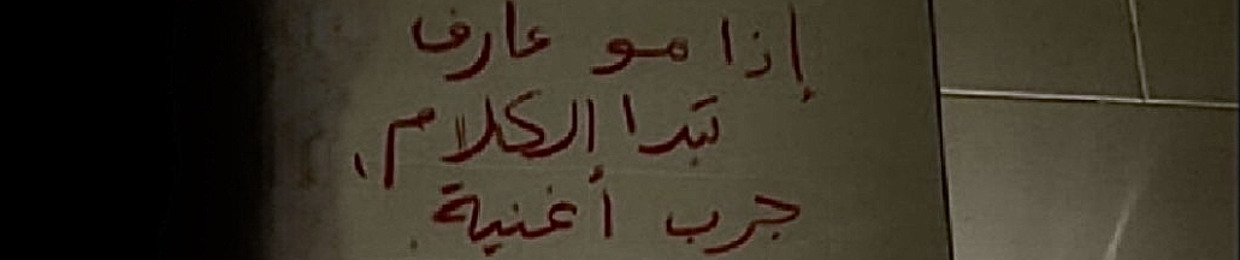 إذا مو عارف
تبدا الكلام،
جرب أغنية.